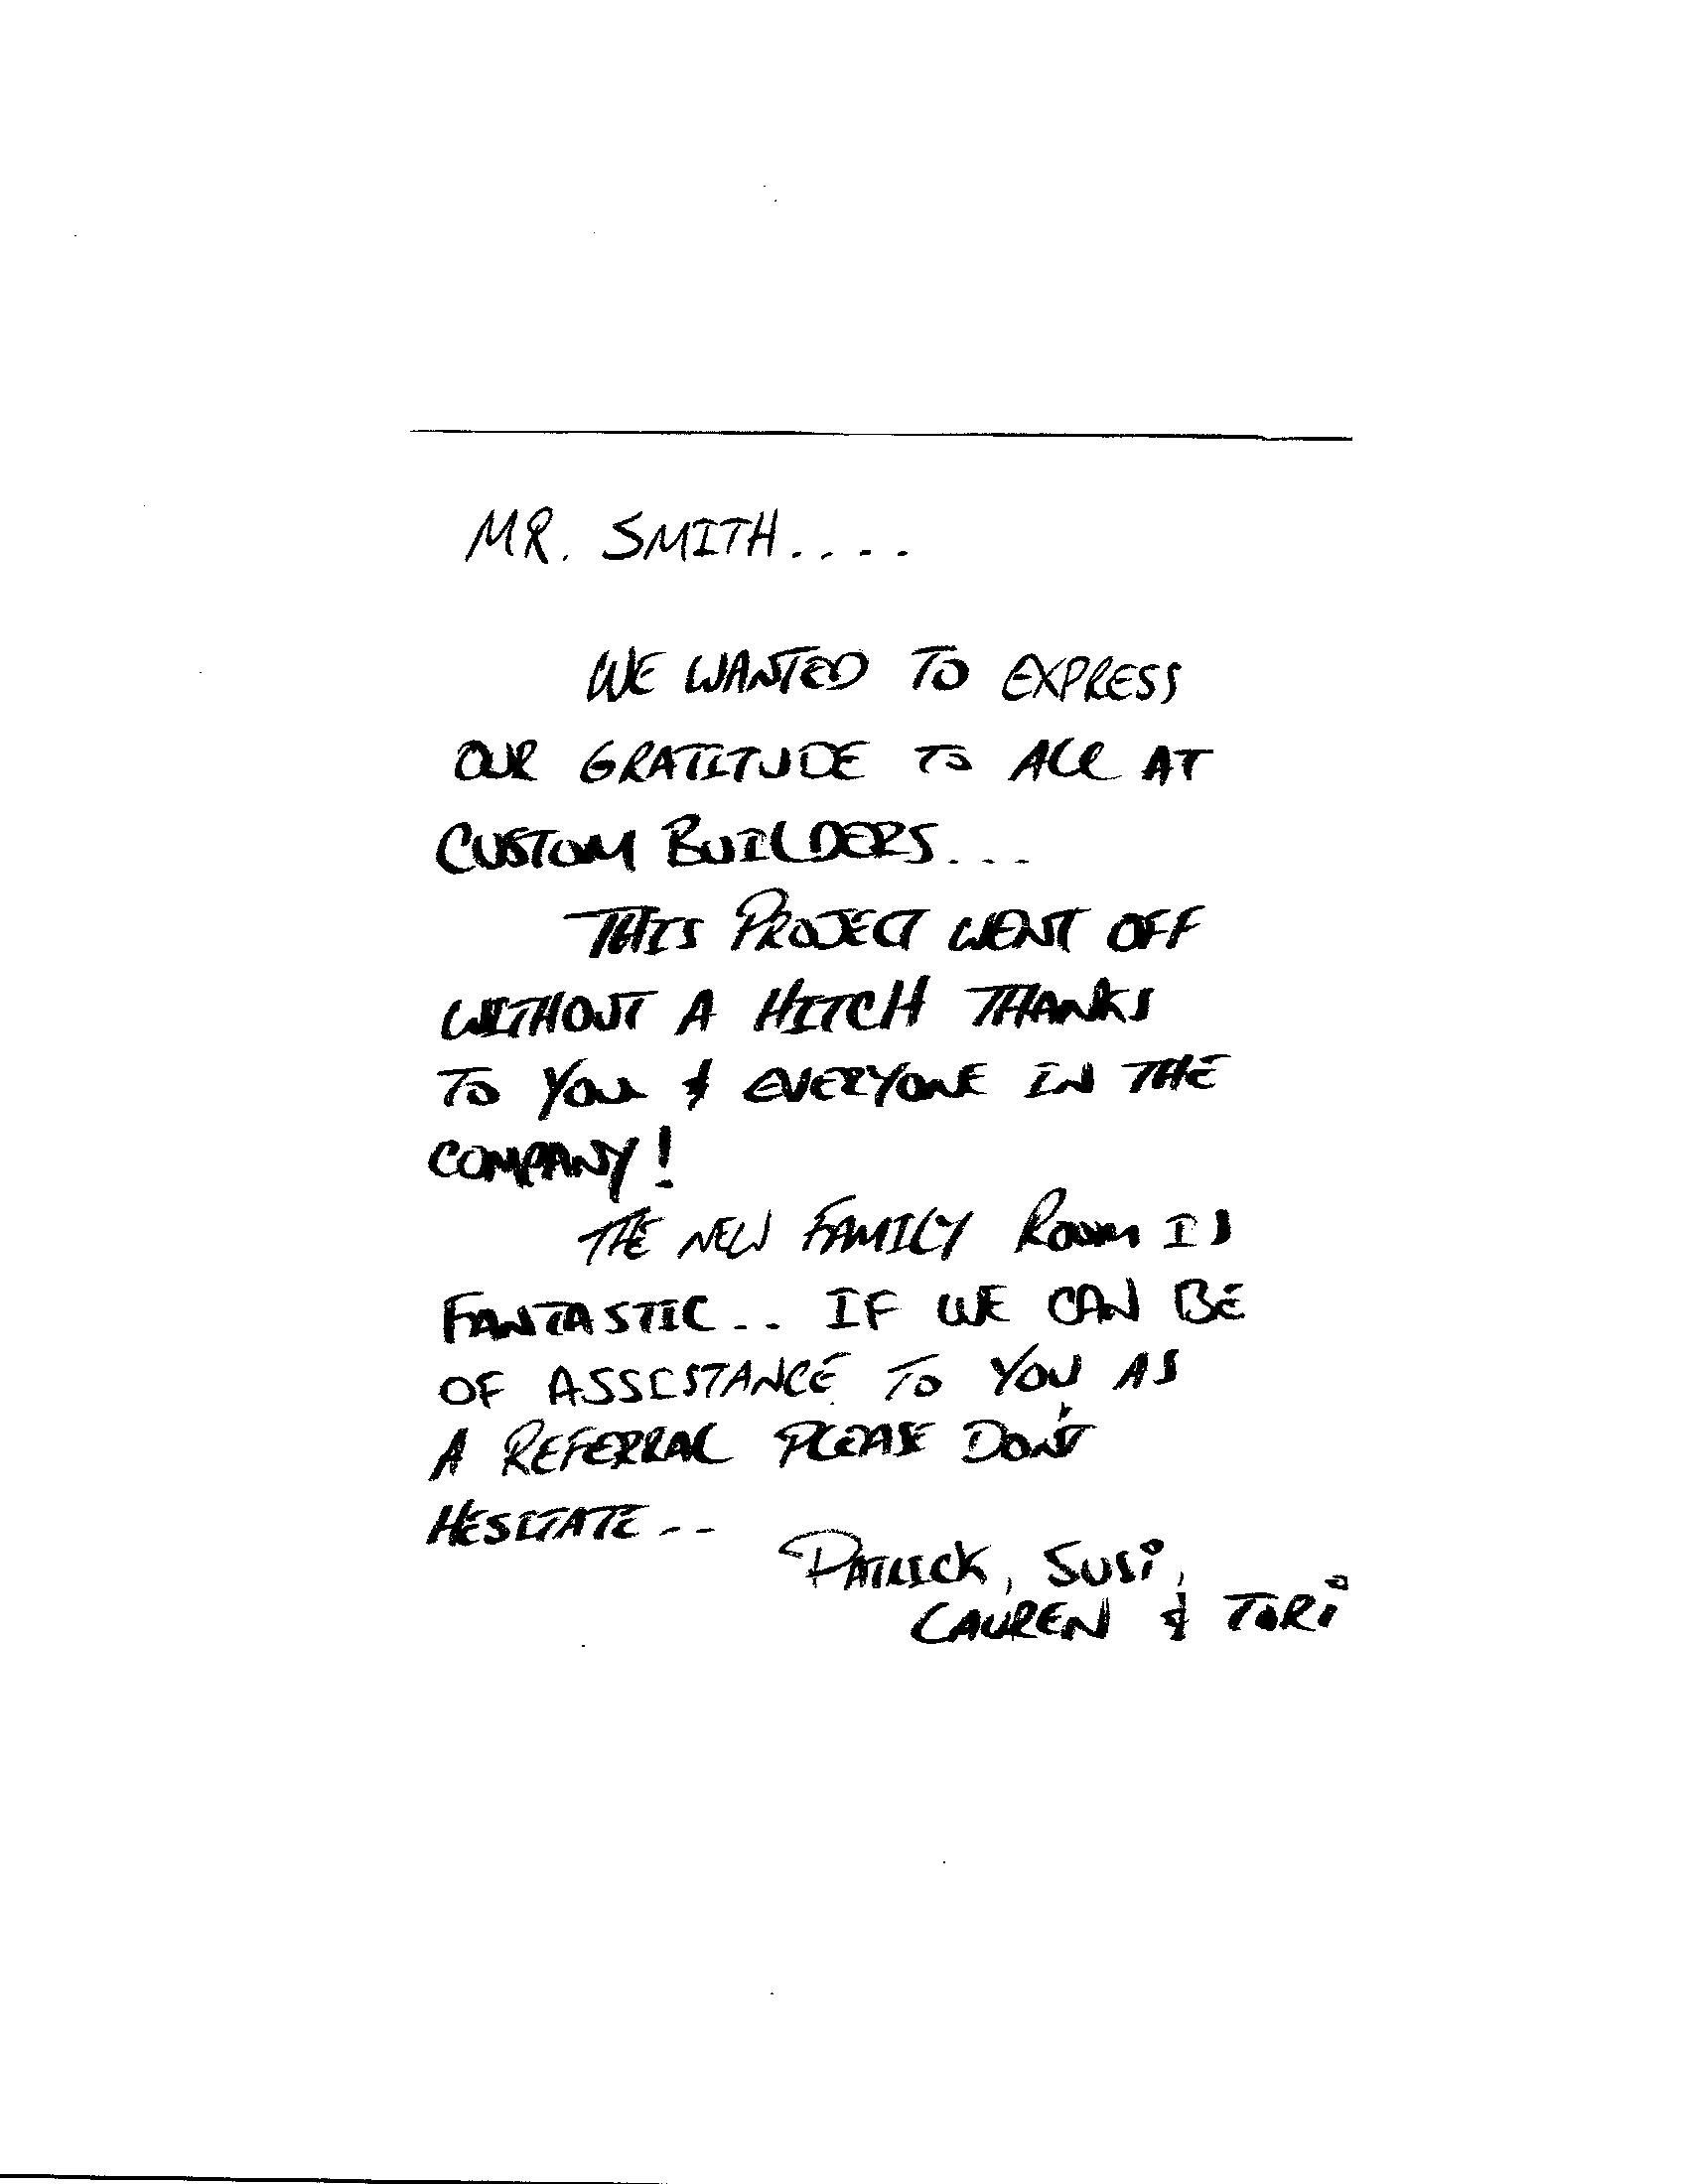 MR. SMITH....
WE WANTED TO EXPRESS
OUR GRATITUDE TO ALL AT
CUSTOM BUILDERS...
THIS PROJECT WENT OFF
WITHOUT A HITCH THANKS
TO YOU & EVERYONE IN THE
COMPANY!
THE NEW FAMILY ROOM IS
FANTASTIC.. IF WE CAN BE
OF ASSISTANCE TO YOU AS
A REFERRAL PLEASE DON'T
HESITATE..
PATRICK, SUSi,
LAUREN & TORi